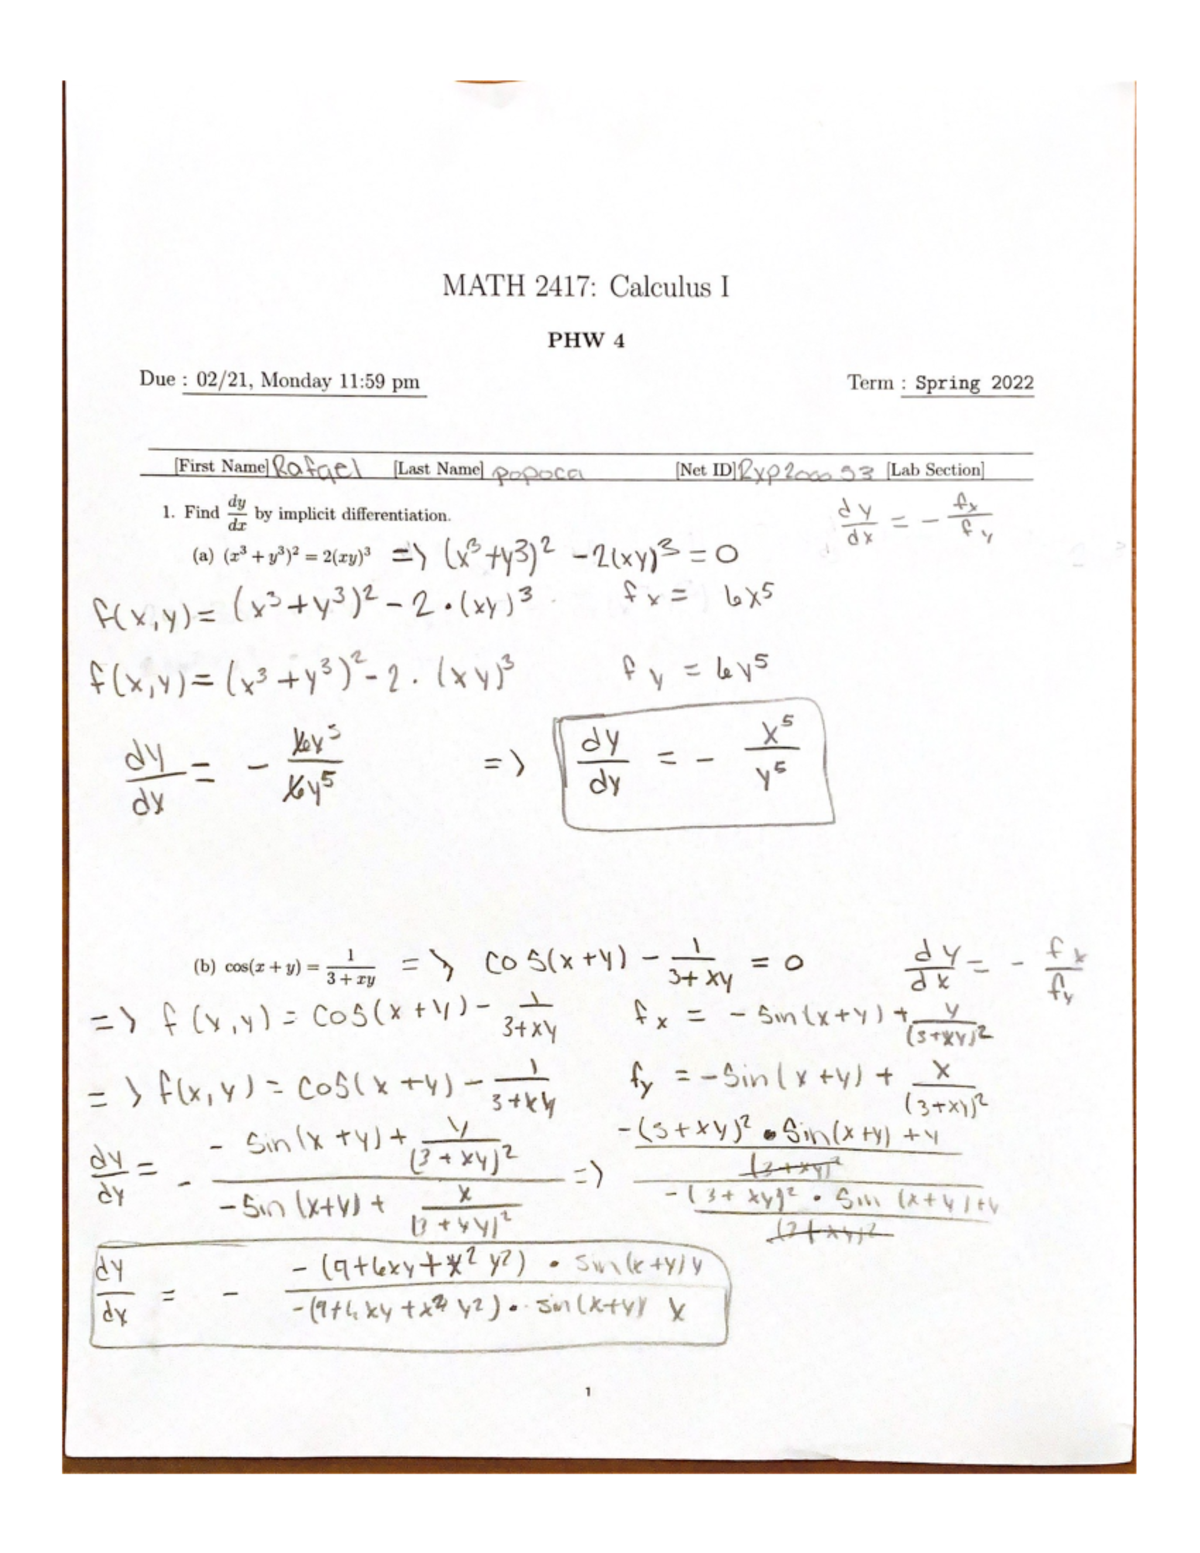 MATH 2417: Calculus I
PHW 4
Due : 02/21, Monday 11:59 pm Term : Spring 2022
[First Name] Rafael [Last Name] Popoca [Net ID] Rxp2000 53 [Lab Section]
1. Find dy/dx by implicit differentiation. dy/dx = - fx/fy
(a) (x³ + y³)² = 2(xy)³ => (x³+y3)² - 2(xy)³ = 0
f(x,y) = (x³+y³)² - 2·(xy)³ fx = 6x⁵
f(x,y) = (x³+y³)² - 2·(xy)³ fy = 6y⁵
dy/dx = - 6x⁵/6y⁵ => dy/dy = - x⁵/y⁵
(b) cos(x + y) = 1/(3 + xy) => cos(x+y) - 1/(3+xy) = 0 dy/dx = - fx/fy
=> f(x,y) = cos(x+y) - 1/(3+xy) fx = -sin(x+y) + y/(3+xy)²
=> f(x,y) = cos(x+y) - 1/(3+xy) fy = -sin(x+y) + x/(3+xy)²
dy/dy = - (-sin(x+y) + y/(3+xy)²)/(-sin(x+y) + x/(3+yy)²) => (-(3+xy)²·sin(x+y)+y/(3+xy)²)/(-(3+xy)²·sin(x+y)+y/(3+xy)²)
dy/dx = - (-(9+6xy+x²y²)·sin(x+y)y)/(-(9+6xy+x²y²)·sin(x+y) x)
1